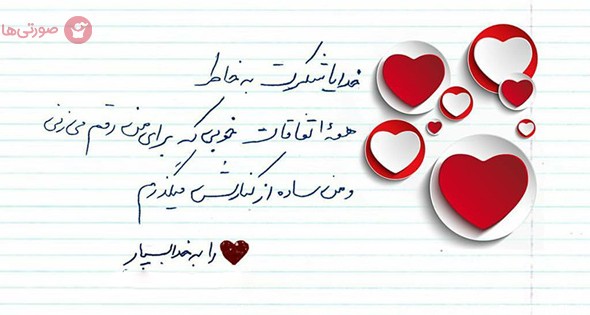 صورتی‌ها
خدایا شکرت به خاطر
همهٔ اتفاقات خوبی که برای من رقم می‌زنی
و من ساده از کنارش میگذرم
❤ را به خدا بسپار